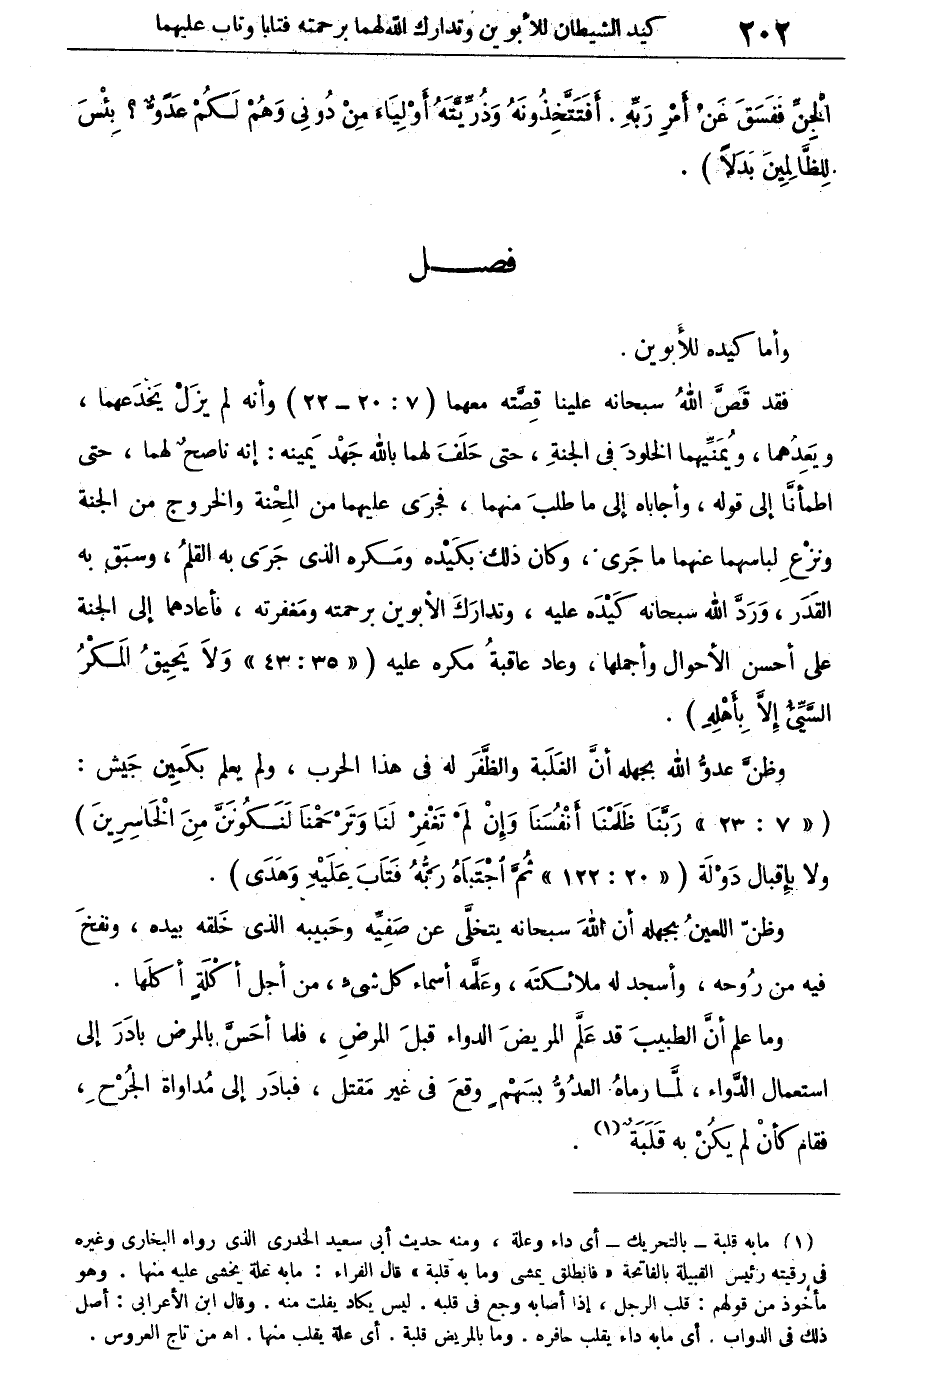 ٢٠٢ كيد الشيطان للأبوين وتدارك الله لهما برحمته فتابا وتاب عليهما
الْجِنِّ فَفَسَقَ عَنْ أَمْرِ رَبِّهِ . أَفَتَتَّخِذُونَهُ وَذُرِّيَّتَهُ أَوْلِيَاءَ مِنْ دُونِى وَهُمْ لَكُمْ عَدُوٌّ ؟ بِئْسَ
لِلظَّالِمِينَ بَدَلاً ) .
فصل
وأما كيده للأبوين .
فقد قَصَّ اللهُ سبحانه علينا قِصَّته معهما ( ٧ : ٢٠ ــ ٢٢ ) وأنه لم يزَلْ يَخْدَعهما ،
ويَعِدُهما ، ويُمَنِّيهما الخلودَ فى الجنةِ ، حتى حَلَفَ لهما بالله جَهْد يَمينه : إنه ناصحٌ لهما ، حتى
اطمأنَّا إلى قوله ، وأجاباه إلى ما طلبَ منهما ، فجرَى عليهما من المِحْنة والخروج من الجنة
ونزْعِ لباسهما عنهما ما جَرى ، وكان ذلك بكَيْده ومَكره الذى جَرَى به القلمُ ، وسبَق به
القَدَر ، وَرَدَّ الله سبحانه كَيْدَه عليه ، وتدارَكَ الأبوين برحمته ومَغفرته ، فأعادهما إلى الجنة
على أحسن الأحوال وأجملها ، وعاد عاقبةُ مكره عليه ( « ٣٥ : ٤٣ » وَلاَ يَحِيقُ الْمَكْرُ
السَّيِّئُ إِلاَّ بِأَهْلِهِ ) .
وظنَّ عدوُّ الله بجهله أنَّ الغَلَبة والظَّفَر له فى هذا الحرب ، ولم يعلم بكَمِين جَيش :
( « ٧ : ٢٣ » رَبَّنَا ظَلَمْنَا أَنْفُسَنَا وَإِنْ لَمْ تَغْفِرْ لَنَا وَتَرْحَمْنَا لَنَكُونَنَّ مِنَ الْخَاسِرِينَ )
ولا بإِقبال دَوْلَة ( « ٢٠ : ١٢٢ » ثُمَّ اجْتَبَاهُ رَبُّهُ فَتَابَ عَلَيْهِ وَهَدَى ) .
وظنّ اللعينُ بجهله أن اللهَ سبحانه يتخلَّى عن صَفِيِّه وحَبيبه الذى خَلقه بيده ، ونفخَ
فيه من رُوحه ، وأسجد له ملائكتَه ، وعَلَّمه أسماء كل شىء ، من أجل أكْلَةٍ أكلَها .
وما علم أنَّ الطبيبَ قد عَلَّم المريضَ الدواء قبلَ المرضِ ، فلما أحَسَّ بالمرض بادَرَ إلى
استعمال الدَّواء ، لمَّا رماهُ العدُوُّ بسَهْمٍ وقعَ فى غير مَقتل ، فبادَر إلى مُداواة الجُرْح ،
فقام كأنْ لم يكُنْ به قَلَبَةٌ (١) .
(١) مابه قلبة ــ بالتحريك ــ أى داء وعلة ، ومنه حديث أبى سعيد الخدرى الذى رواه البخارى وغيره
فى رقيته رئيس القبيلة بالفاتحة « فانطلق يمشى وما به قلبة » قال الفراء : مابه علة يخشى عليه منها . وهو
مأخوذ من قولهم : قلب الرجل ، إذا أصابه وجع فى قلبه . ليس يكاد يفلت منه . وقال ابن الأعرابى : أصل
ذلك فى الدواب . أى مابه داء يقلب حافره . وما بالمريض قلبة . أى علة يقلب منها . اه من تاج العروس .